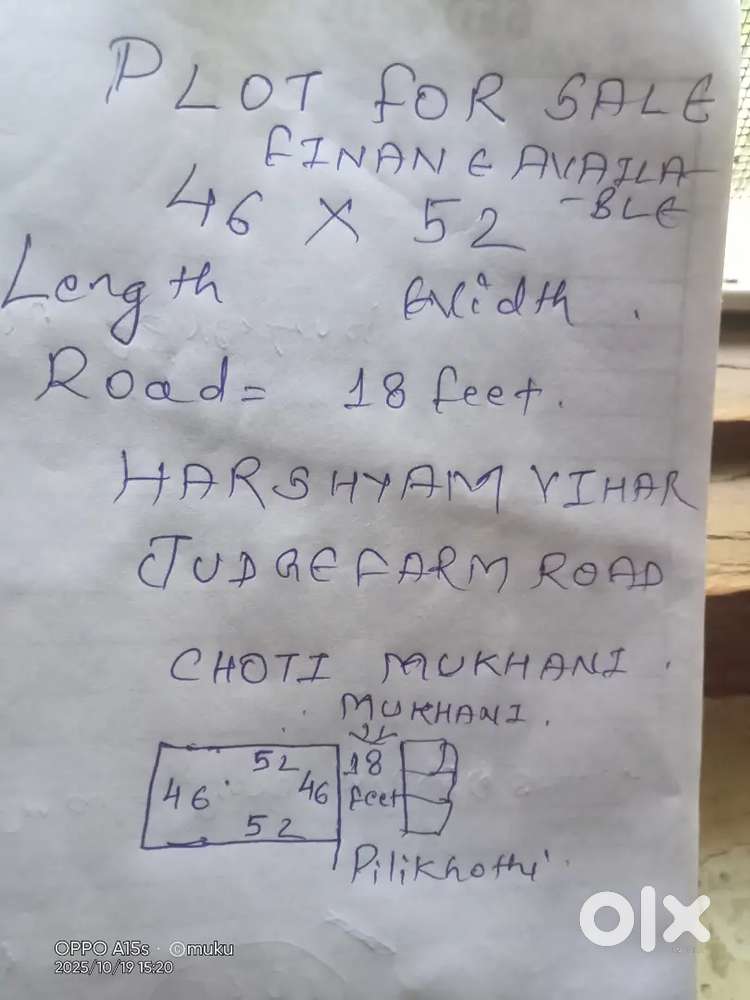 PLOT FOR SALE
FINANE AVAILA-
-BLE
46 X 52
Length Width.
Road= 18 feet.
HARSHYAM VIHAR
JUDGE FARM ROAD
CHOTI MUKHANI.
MUKHANI.
52 18
46 46 feet
52
Pilikhothi
olx
OPPO A15s · ©muku
2025/10/19 15:20